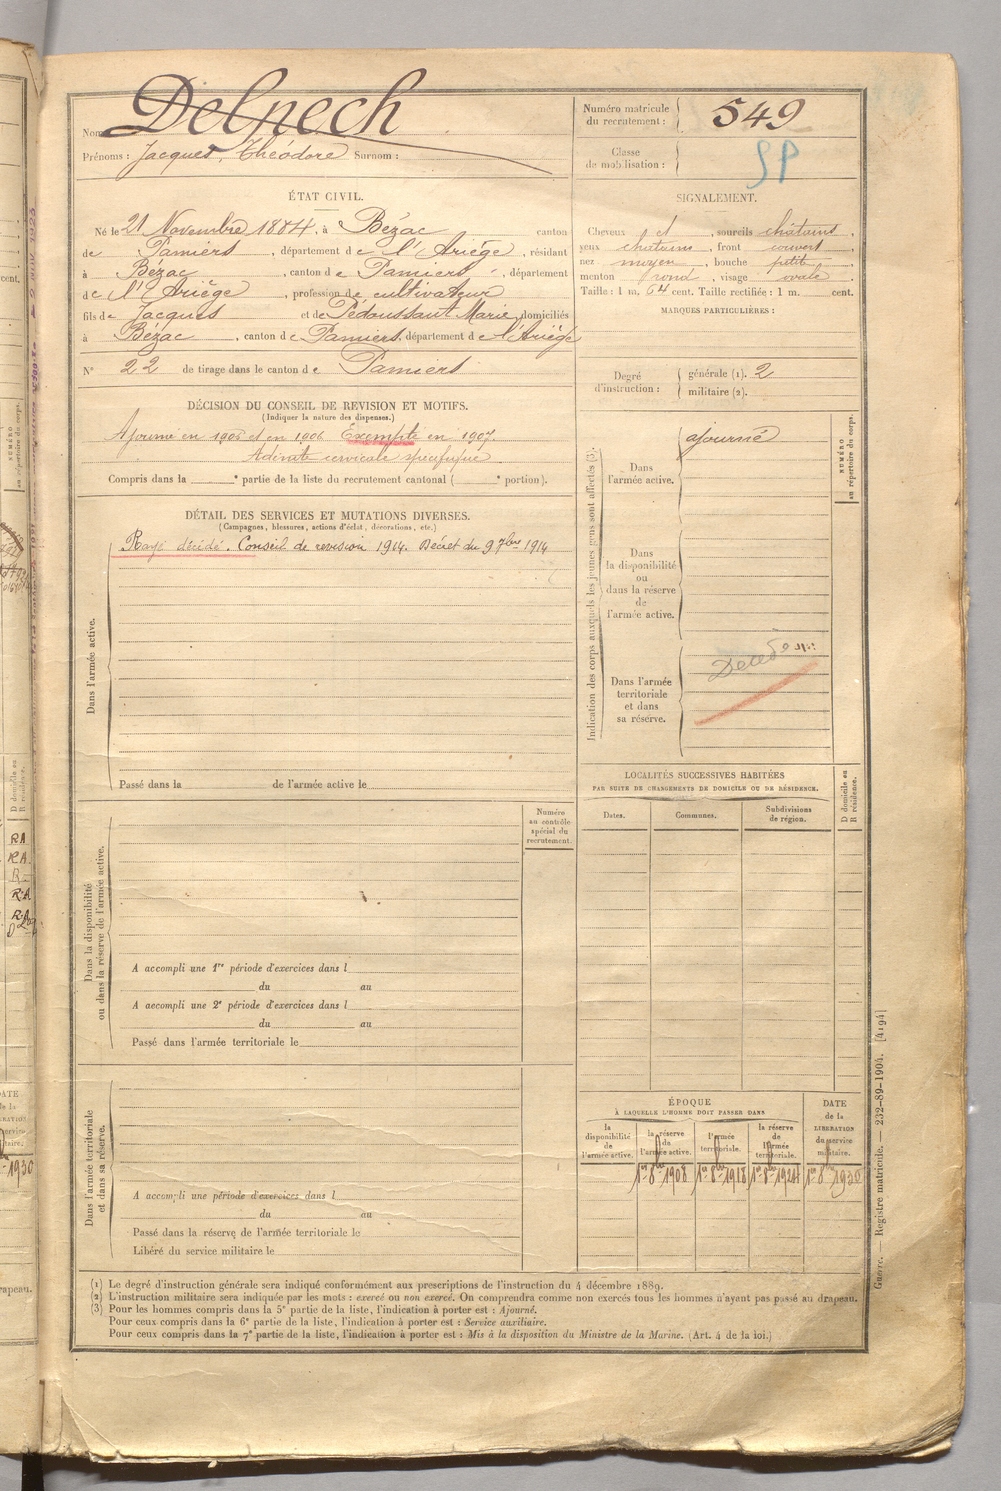 Nom Delpech
Prénoms : Jacques, Théodore Surnom :
Numéro matricule du recrutement : 549
Classe de mobilisation : SP
ÉTAT CIVIL.
Né le 21 Novembre 1884, à Bézac canton
de Pamiers, département de l'Ariège, résidant
à Bézac, canton de Pamiers, département
de l'Ariège, profession de cultivateur
fils de Jacques et de Pédoussaut Marie, domiciliés
à Bézac, canton de Pamiers, département de l'Ariège
N° 22 de tirage dans le canton de Pamiers
SIGNALEMENT.
Cheveux et, sourcils châtains
yeux chatains, front couvert
nez moyen, bouche petite
menton rond, visage ovale
Taille : 1 m. 64 cent. Taille rectifiée : 1 m. cent.
MARQUES PARTICULIÈRES :
Degré d'instruction : générale (1). 2
militaire (2).
DÉCISION DU CONSEIL DE REVISION ET MOTIFS.
(Indiquer la nature des dispenses.)
Ajourné en 1905 et en 1906 Exempté en 1907.
Adénite cervicale spécifique
Compris dans la e partie de la liste du recrutement cantonal ( e portion).
DÉTAIL DES SERVICES ET MUTATIONS DIVERSES.
(Campagnes, blessures, actions d'éclat, décorations, etc.)
Rayé décédé. Conseil de revision 1914. Décret du 9 7bre 1914
Dans l'armée active.
Passé dans la de l'armée active le
Indication des corps auxquels les jeunes gens sont affectés (3).
Dans l'armée active.
ajourné
Dans la disponibilité ou dans la réserve de l'armée active.
Dans l'armée territoriale et dans sa réserve.
Décédé
NUMÉRO au répertoire du corps.
LOCALITÉS SUCCESSIVES HABITÉES
PAR SUITE DE CHANGEMENTS DE DOMICILE OU DE RÉSIDENCE.
Dates. Communes. Subdivisions de région.
D domicile ou R résidence.
Numéro au contrôle spécial du recrutement.
Dans la disponibilité ou dans la réserve de l'armée active.
A accompli une 1re période d'exercices dans l
du au
A accompli une 2e période d'exercices dans l
du au
Passé dans l'armée territoriale le
Dans l'armée territoriale et dans sa réserve.
A accompli une période d'exercices dans l
du au
Passé dans la réserve de l'armée territoriale le
Libéré du service militaire le
ÉPOQUE
À LAQUELLE L'HOMME DOIT PASSER DANS
la disponibilité de l'armée active.
la réserve de l'armée active.
l'armée territoriale.
la réserve de l'armée territoriale.
DATE de la LIBÉRATION du service militaire.
1er 8bre 1908 1er 8bre 1918 1er 8bre 1924 1er 8bre 1930
(1) Le degré d'instruction générale sera indiqué conformément aux prescriptions de l'instruction du 4 décembre 1889.
(2) L'instruction militaire sera indiquée par les mots : exercé ou non exercé. On comprendra comme non exercés tous les hommes n'ayant pas passé au drapeau.
(3) Pour les hommes compris dans la 5e partie de la liste, l'indication à porter est : Ajourné.
Pour ceux compris dans la 6e partie de la liste, l'indication à porter est : Service auxiliaire.
Pour ceux compris dans la 7e partie de la liste, l'indication à porter est : Mis à la disposition du Ministre de la Marine. (Art. 4 de la loi.)
Guerre. — Registre matricule. — 232-89-1904. [4194]